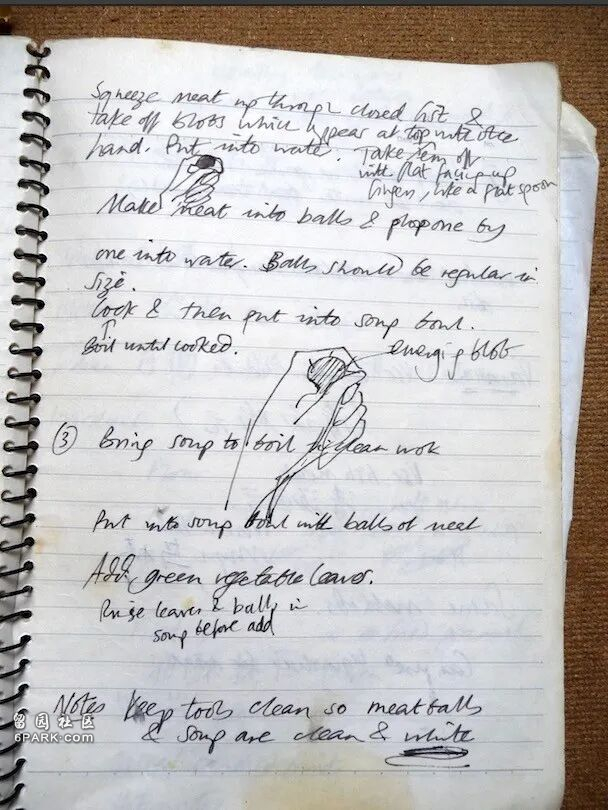 Squeeze meat up through closed fist &
take off blobs which appear at top with other
hand. Put into water. Take em off
with flat facing up
fingers, like a flat spoon
Make meat into balls & plop one by
one into water. Balls should be regular in
size.
Cook & then put into soup bowl.
Boil until cooked.
emergig blob
③ Bring soup to boil in clean wok
Put into soup bowl with balls of meat
Add green vegetable leaves.
Rinse leaves & balls in
soup before add
Notes Keep tools clean so meatballs
& soup are clean & white
留园社区
6PARK.com